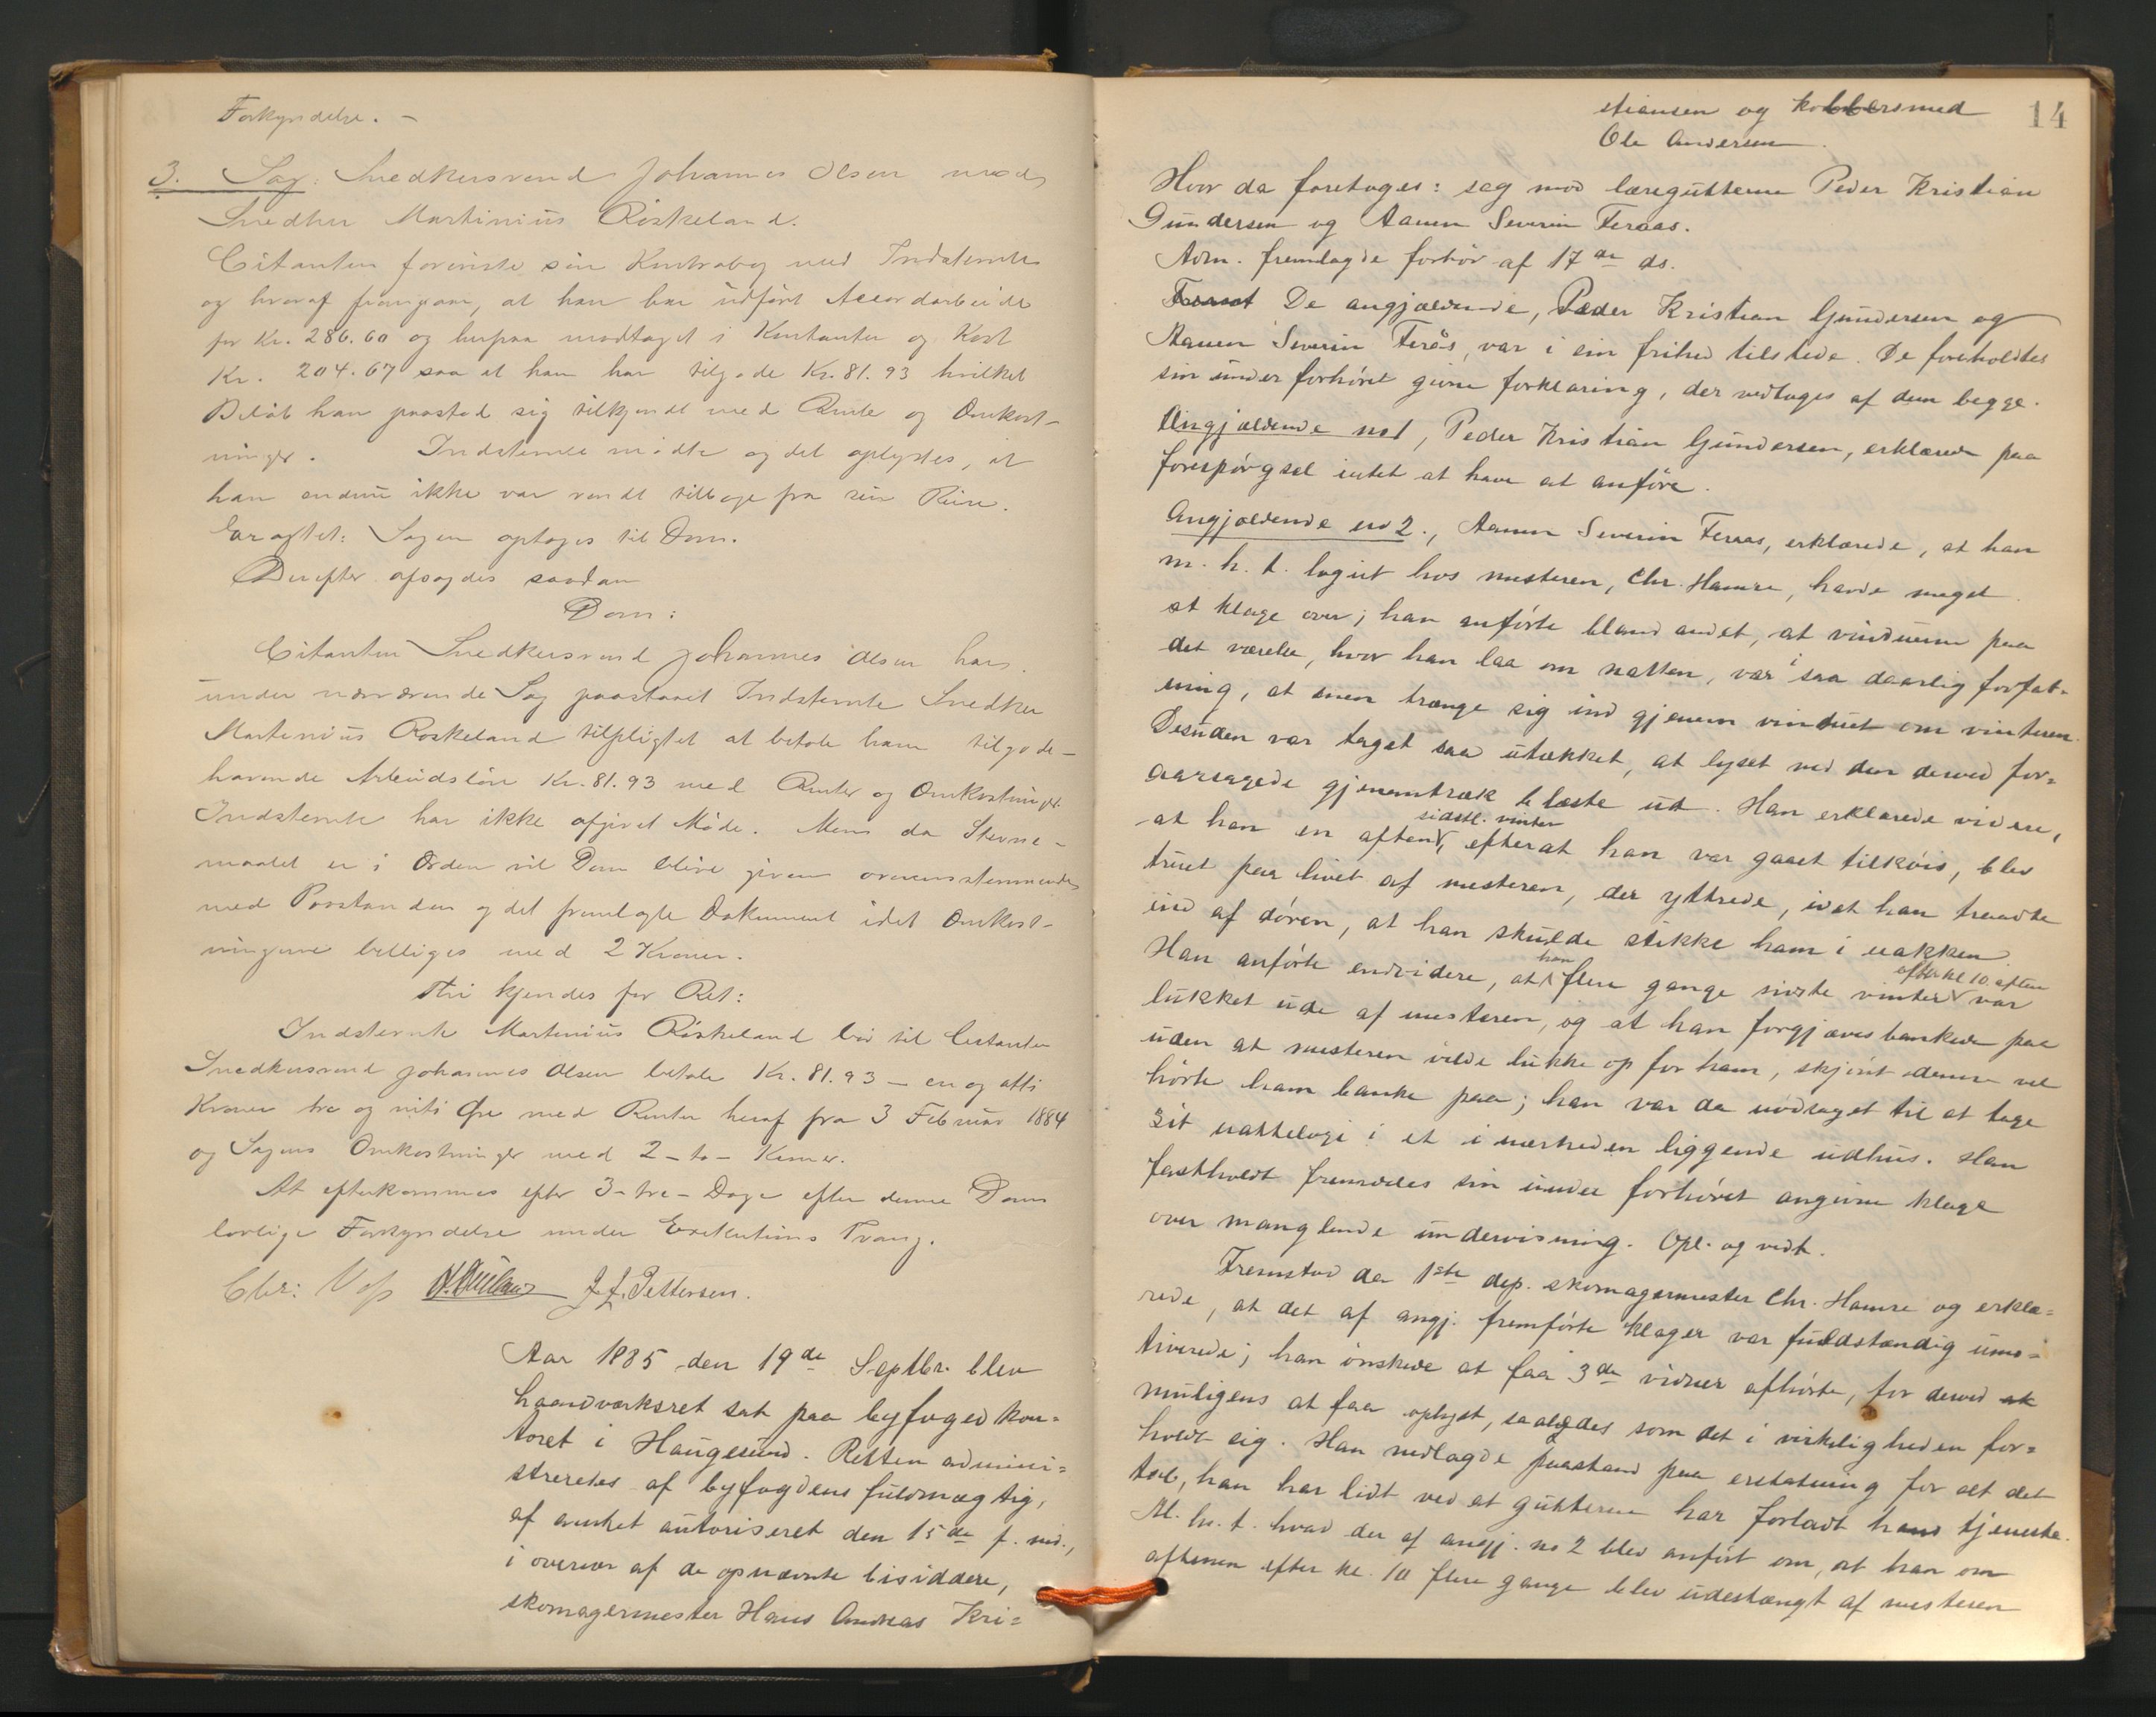 Forkyndelse. -
3. Sag: Snedkersvend Johannes Olsen mod
Snedker Martinius Röskeland.
Citanten foreviste sin Kontrabog med Indstevnte
og hvoraf fremgaar, at han har udført Accordarbeide
for Kr. 286.60 og herpaa modtaget i Kontanter og Kost
Kr. 204.67 saa at han har tilgode Kr. 81.93 hvilket
Beløb han paastod sig tilkjendt med Renter og Omkost-
ninger. Indstevnte mødte og det oplystes, at
han endnu ikke var vendt tilbage fra sin Reise.
Eragtet: Sagen optages til Dom.
Derefter afsagdes saadan
Dom:
Citanten Snedkersvend Johannes Olsen har
under nærværende Sag paastaaet Indstevnte Snedker
Martinius Roskeland tilpligtet at betale ham tilgode-
havende Arbeidsløn Kr. 81.93 med Renter og Omkostninger.
Indstevnte har ikke afgivet Møde. Men da Stevne-
maalet er i Orden vil Dom blive given overensstemmende
med Paastanden og det fremlagte Dokument idet Omkost-
ningerne billiges med 2 Kroner.
Thi kjendes for Ret:
Indstevnte Martinius Röskeland bör til Citanten
Snedkersvend Johannes Olsen betale Kr. 81.93 - en og otti
Kroner tre og niti Øre med Renter heraf fra 3 Februar 1884
og Sagens Omkostninger med 2 - to - Kroner.
At efterkommes efter 3 - tre - Dage efter denne Doms
lovlige Forkyndelse under Exekutions Tvang.
Chr: J. J. Pettersen.
Aar 1885 den 19de Septbr. blev
haandværksret sat paa byfogedkon=
toret i Haugesund. Retten admini=
streredes af byfogdens fuldmægtig,
af amtet autoriseret den 15de f. md.,
i overvær af de opnævnte bisiddere,
skomagermester Hans Andreas Kri=
14
stiansen og kobbersmed
Ole Andersen.
Hvor da foretoges: sag mod læregutterne Peder Kristian
Gundersen og Aanen Severin Feraas.
Adm. fremlagde forhör af 17de ds.
De angjældende, Peder Kristian Gundersen og
Aanen Severin Ferås, var i sin frihed tilstede. De foreholdtes
sin under forhöret givne forklaring, der vedtoges af dem begge.
Angjældende no 1, Peder Kristian Gundersen, erklærede paa
forespörgsel intet at have at anföre.
Angjældende no 2., Aanen Severin Feraas, erklærede, at han
m. h. t. logiet hos mesteren, Chr. Hamre, havde meget
at klage over; han anförte bland andet, at vinduerne paa
det værelse, hvor han laa om natten, var i saa daarlig forfat=
ning, at sneen trænge sig ind gjenem vinduet om vinteren.
Desuden var taget saa utækket, at lyset ved den derved for=
aarsagede gjenemtræk blæste ud. Han erklærede videre,
at han en aften sidstl. vinter, efterat han var gaaet tilköis, blev
truet paa livet af mesteren, der yttrede, idet han traadte
ind af dören, at han skulde stikke ham i nakken.
Han anförte endvidere, at han flere gange sidste vinter efter kl 10 aften var
lukket ude af mesteren, og at han forgjæves bankede paa
uden at mesteren vilde lukke op for ham, skjönt denne vel
hörte ham banke paa; han var da nödsaget til at tage
sit natteloge i et i nærheden liggende udhus. Han
fastholdt fremdeles sin under forhöret angivne klage
over manglende undervisning. Opl. og vedt.
Fremstod da 1ste dep. skomagermester Chr. Hamre og erklæ=
rede, at det af angj. fremförte klager var fuldstændig umo=
tiverede; han önskede at faa 3de vidner afhörte, for derved at
muligens at faa oplyst, saaledes som det i virkeligheden for=
holdt sig. Han nedlagde paastand paa erstatning for alt det
tab, han har lidt ved at gutterne har forladt hans tjeneste.
M. h. t. hvad der af angj. no 2 blev anfört om, at han om
aftenen efter kl. 10 flere gange blev udestængt af mesteren